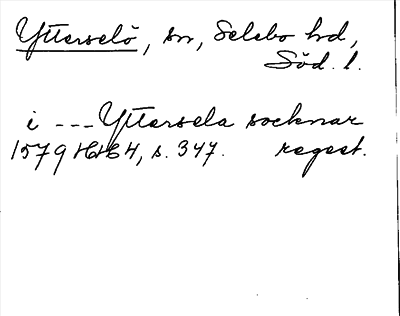 Ytterselö, sn, Selebo hd,
Söd. l.
i --- Yttersela socknar
1579 HH 4, s. 347. regest.